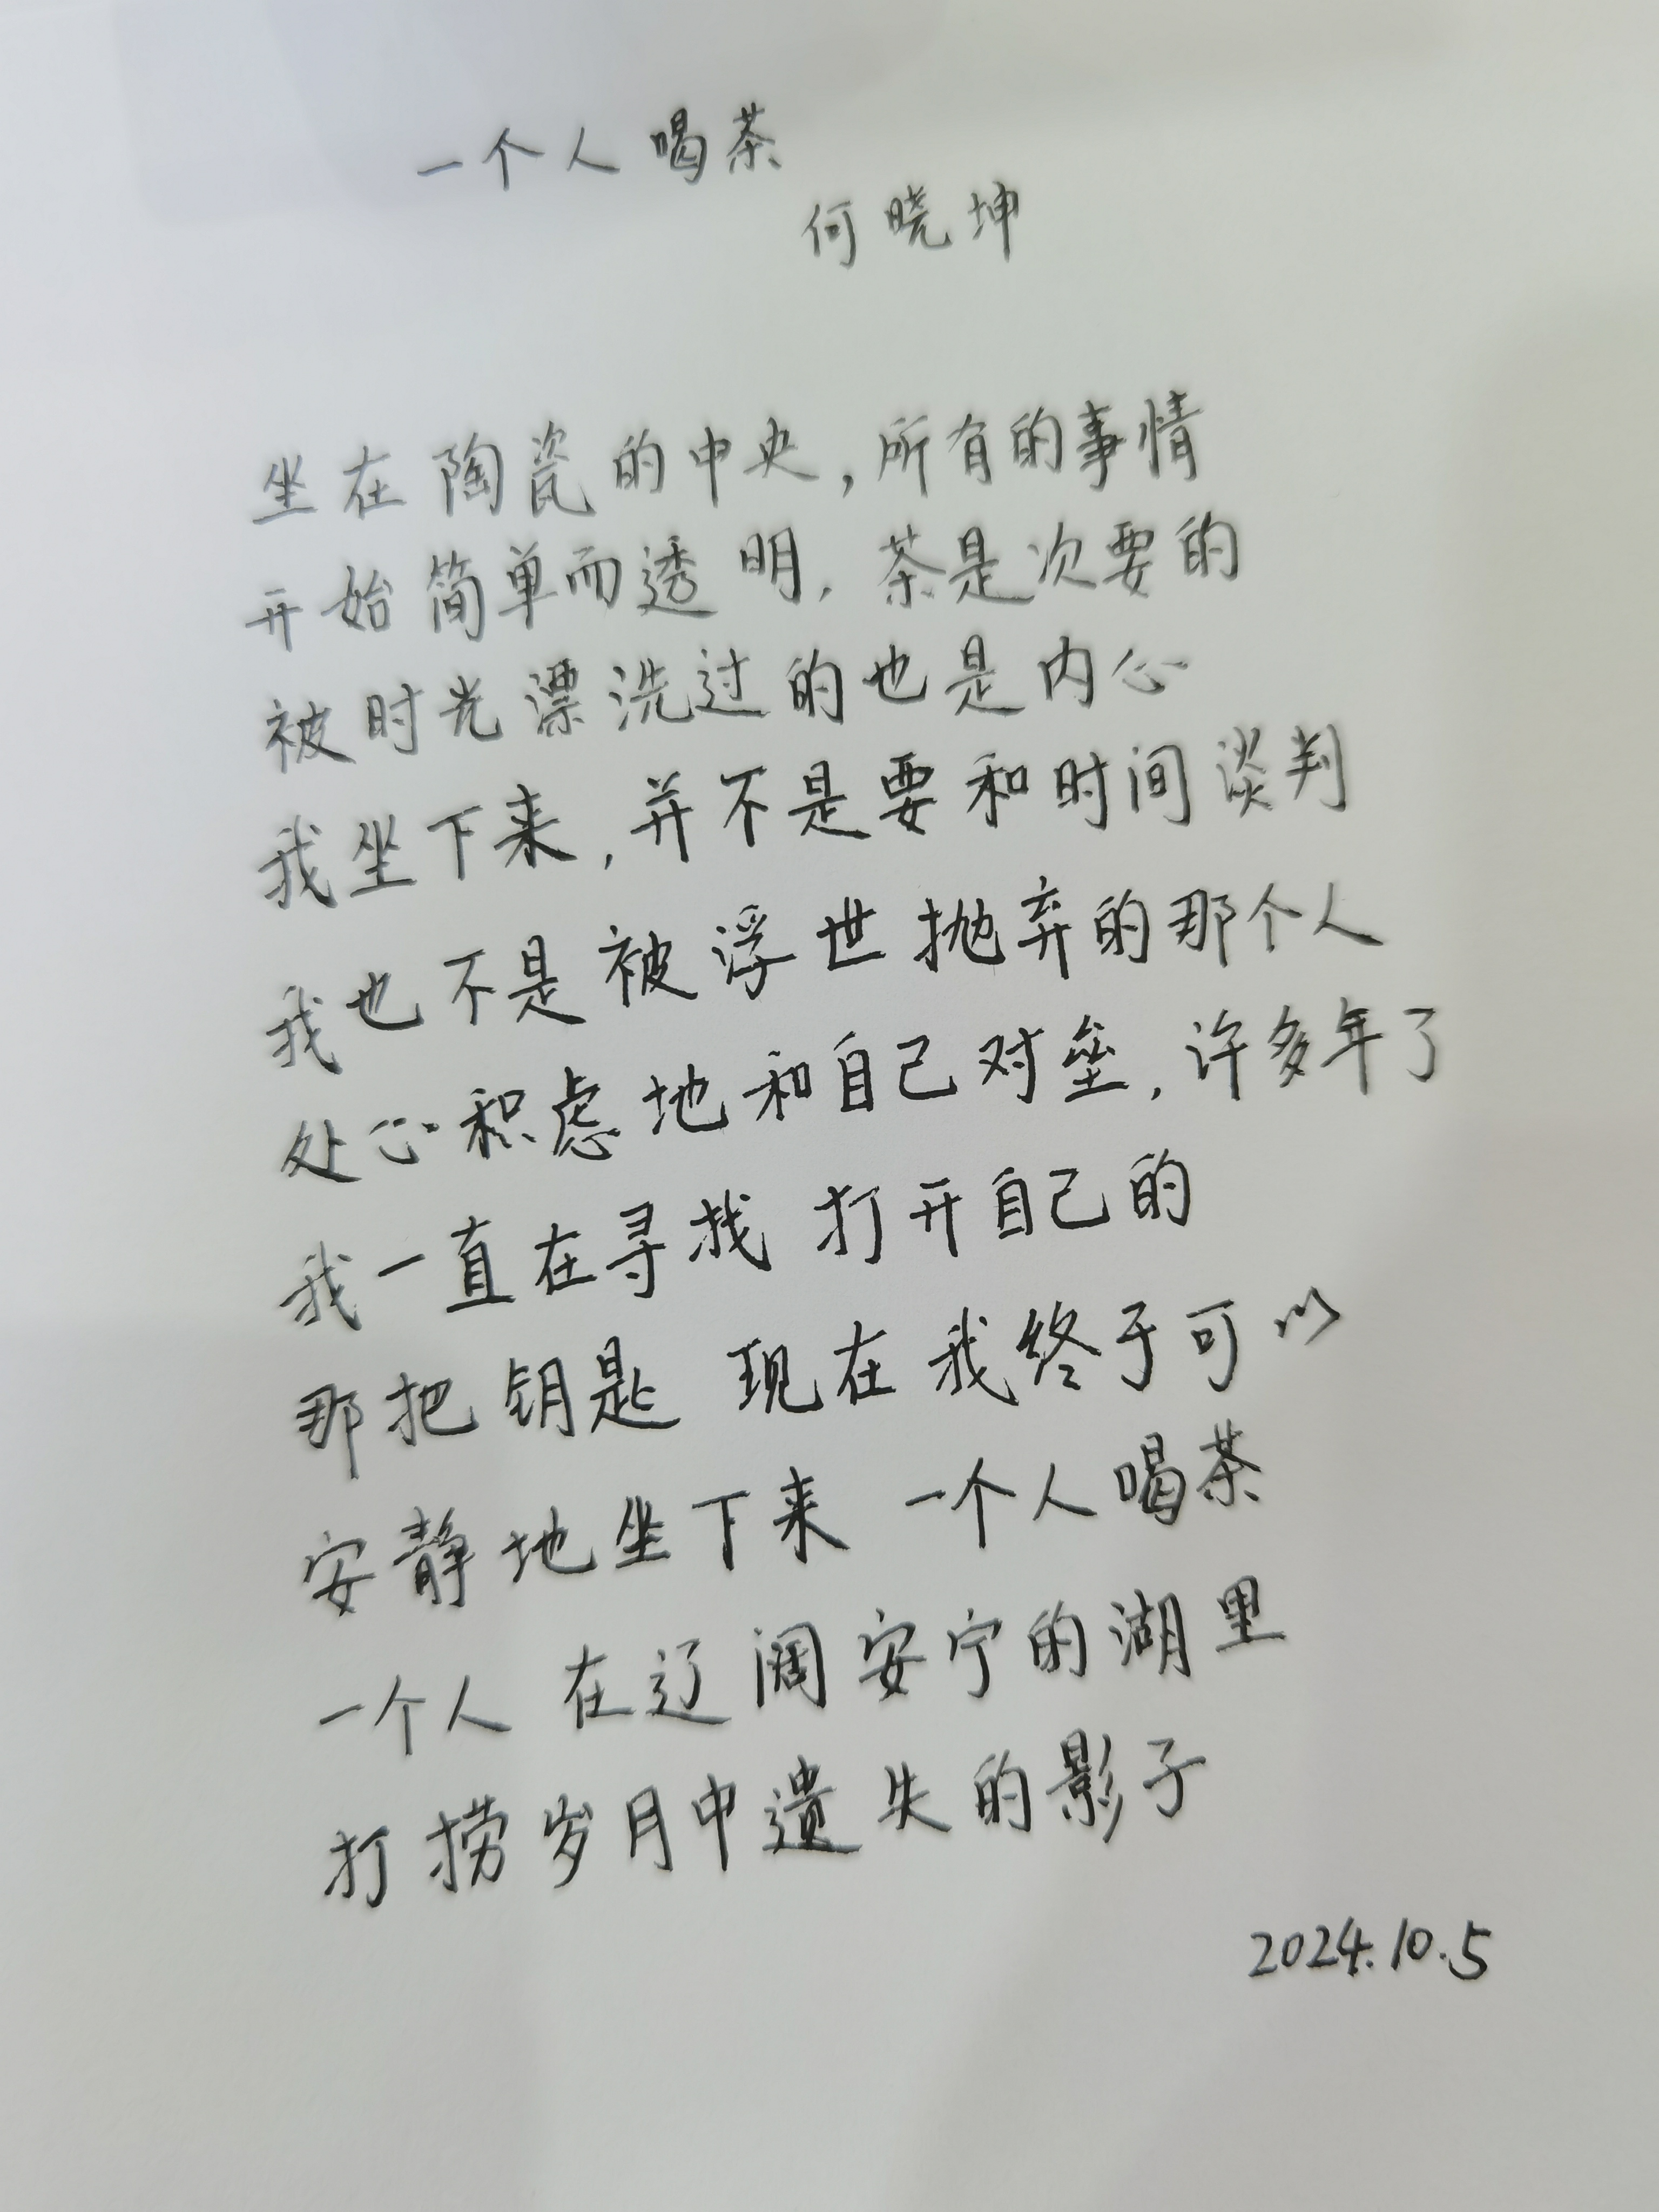 一个人喝茶
何晓坤
坐在陶瓷的中央，所有的事情
开始简单而透明，茶是次要的
被时光漂洗过的也是内心
我坐下来，并不是要和时间谈判
我也不是被浮世抛弃的那个人
处心积虑地和自己对垒，许多年了
我一直在寻找 打开自己的
那把钥匙 现在我终于可以
安静地坐下来 一个人喝茶
一个人 在辽阔安宁的湖里
打捞岁月中遗失的影子
2024.10.5